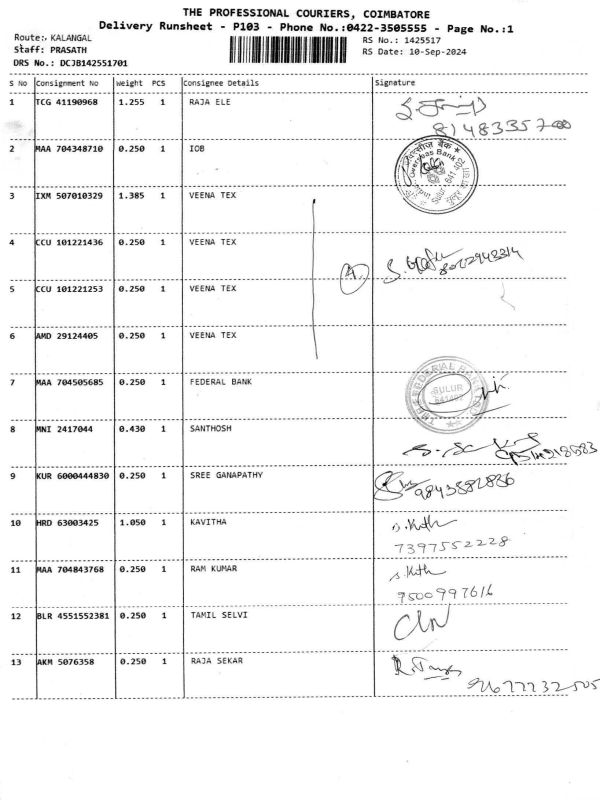 THE PROFESSIONAL COURIERS, COIMBATORE
Delivery Runsheet - P103 - Phone No.:0422-3505555 - Page No.:1
Route: KALANGAL
RS No.: 1425517
Staff: PRASATH
RS Date: 10-Sep-2024
DRS No.: DCJB142551701
S No Consignment No Weight PCS Consignee Details Signature
1 TCG 41190968 1.255 1 RAJA ELE
2 MAA 704348710 0.250 1 IOB
3 IXM 507010329 1.385 1 VEENA TEX
4 CCU 101221436 0.250 1 VEENA TEX
5 CCU 101221253 0.250 1 VEENA TEX
4
6 AMD 29124405 0.250 1 VEENA TEX
7 MAA 704505685 0.250 1 FEDERAL BANK
SULUR
8 MNI 2417044 0.430 1 SANTHOSH
9 KUR 6000444830 0.250 1 SREE GANAPATHY
9843882886
10 HRD 63003425 1.050 1 KAVITHA
7397552228
11 MAA 704843768 0.250 1 RAM KUMAR
9500997616
12 BLR 4551552381 0.250 1 TAMIL SELVI
13 AKM 5076358 0.250 1 RAJA SEKAR